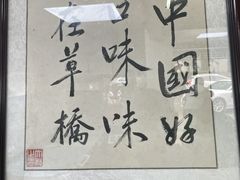 中國好
口味味
在草橋